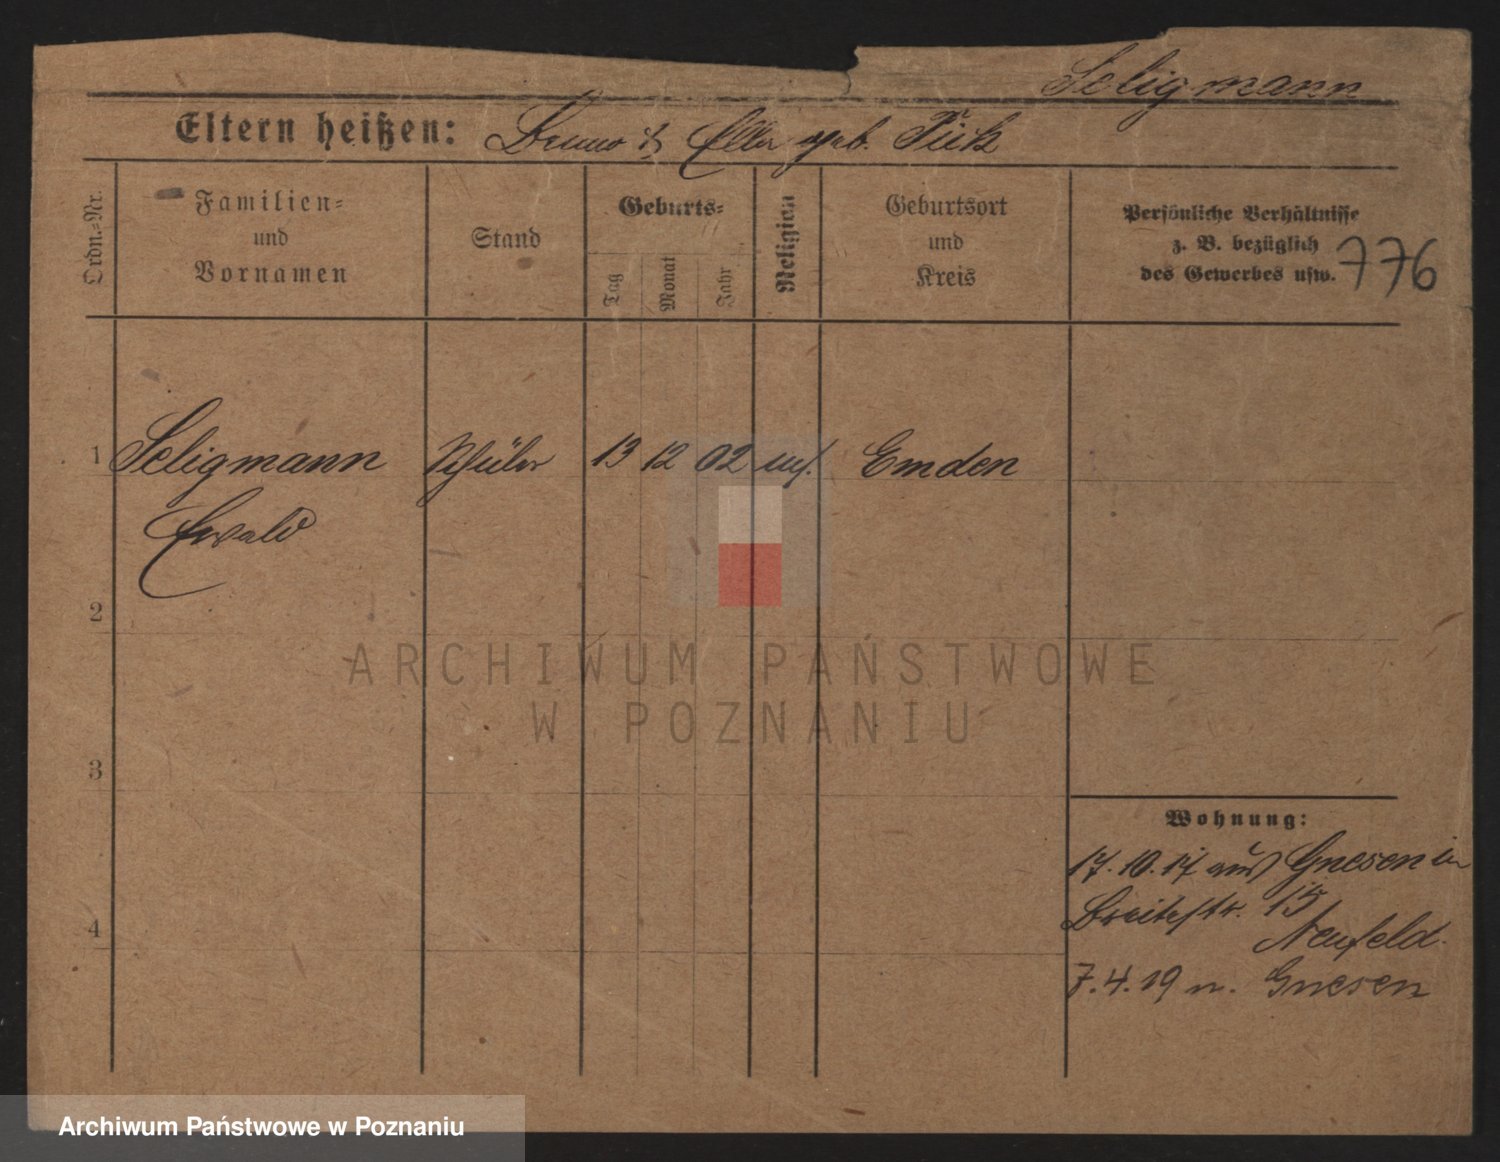 Seligmann
Eltern heißen: Bruno & Ella geb.
Ordn.-Nr.
Familien-
und
Vornamen
Stand
Geburts-
Tag
Monat
Jahr
Religion
Geburtsort
und
Kreis
Persönliche Verhältnisse
z. B. bezüglich
des Gewerbes usw.
776
1 Seligmann Schüler 13 12 02 Emden
Ewald
2
3
4
Wohnung:
17.10.17 aus Gnesen in
Breitestr. 15
Neufeld.
7.4.19 n. Gnesen
ARCHIWUM PAŃSTWOWE
W POZNANIU
Archiwum Państwowe w Poznaniu